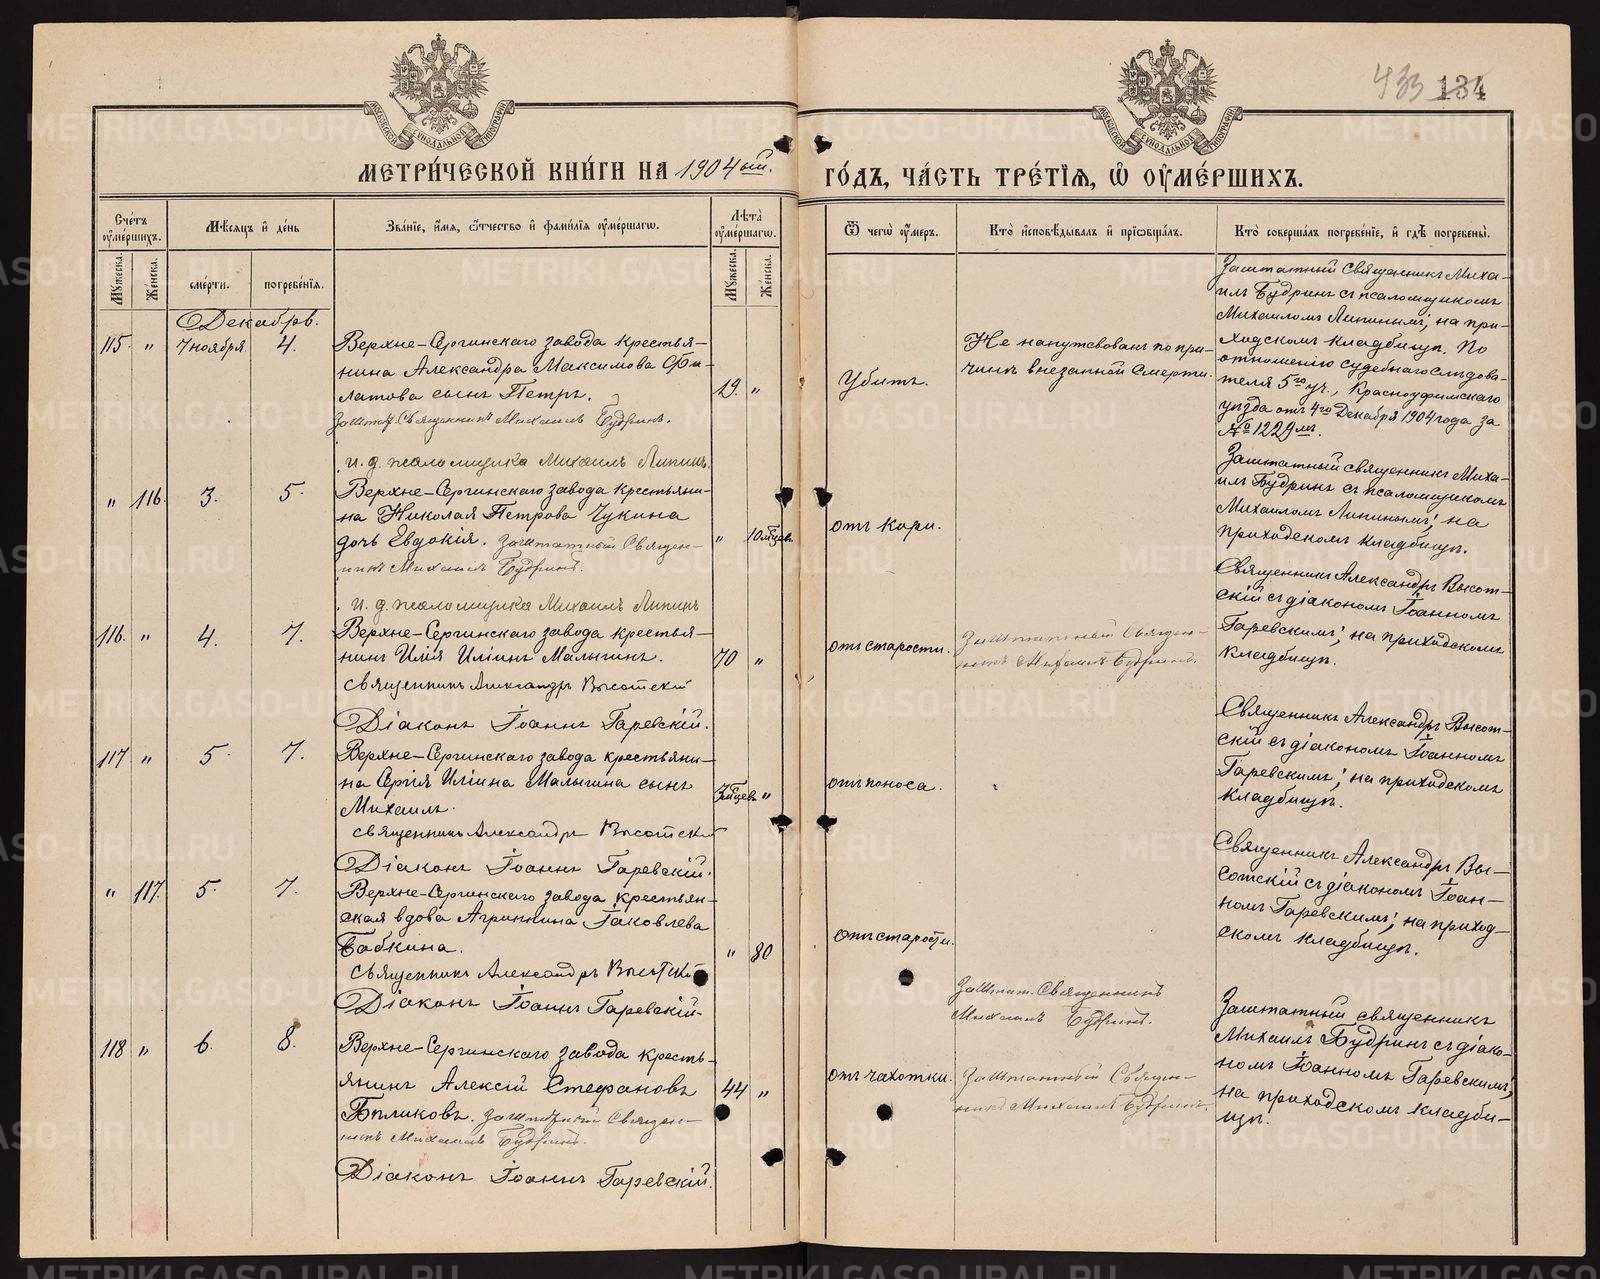 433 134
МОСКОВСКОЙ СѴНОДАЛЬНОЙ ТИПОГРАФІИ
МОСКОВСКОЙ СѴНОДАЛЬНОЙ ТИПОГРАФІИ
МЕТРИ́ЧЕСКОЙ КНИ́ГИ НА 1904ый.
ГО́ДЪ, ЧА́СТЬ ТРЕ́ТІѦ, Ѡ ОУМЕ́РШИХЪ.
Сче́тъ оумершихъ.
Мѣсяцъ и де́нь
Зва́ніе, и́мя, о́тчество и фами́лія оуме́ршаго.
Лѣта̀ оуме́ршаго.
Ѿ чегѡ̀ оу́меръ.
Кто̀ исповѣ́дывалъ и пріѡбща́лъ.
Кто̀ соверша́лъ погребе́ніе, и гдѣ̀ погребены̀.
Мꙋжеска. Же́нска.
сме́рти. погребе́нія.
Мꙋжеска. Же́нска.
Декабрь.
115. " 7 ноября. 4.
Верхне-Сергинскаго завода крестья-
нина Александра Максимова Фи-
латова сынъ Петръ.
Заштат. Священникъ Михаилъ Будринъ.
и. д. псаломщика Михаилъ Липинъ.
19. "
Убитъ.
Не напутствованъ по при-
чинѣ внезапной смерти.
Заштатный священникъ Миха-
илъ Будринъ съ псаломщикомъ
Михаиломъ Липинымъ; на при-
ходскомъ кладбищѣ. По
отношенію судебнаго слѣдова-
теля 5го уч., Красноуфимскаго
уѣзда отъ 4го Декабря 1904 года за
№ 1229мъ.
" 116. 3. 5.
Верхне-Сергинскаго завода крестьяни-
на Николая Петрова Чукина
дочь Евдокія. Заштатный Священ-
никъ Михаилъ Будринъ.
и. д. псаломщика Михаилъ Липинъ
" 10 мѣсцевъ
отъ кори.
Заштатный священникъ Миха-
илъ Будринъ съ псаломщикомъ
Михаиломъ Липинымъ; на
приходскомъ кладбищѣ.
116. " 4. 7.
Верхне-Сергинскаго завода крестья-
нинъ Илія Иліинъ Малыгинъ.
священникъ Александръ Высотскій
Діаконъ Іоаннъ Гаревскій.
70 "
отъ старости.
Заштатный Священ-
никъ Михаилъ Будринъ.
Священникъ Александръ Высот-
скій съ діакономъ Іоанномъ
Гаревскимъ; на приходскомъ
кладбищѣ.
117 " 5. 7.
Верхне-Сергинскаго завода крестьяни-
на Сергія Иліина Малыгина сынъ
Михаилъ.
священникъ Александръ Высотскій
Діаконъ Іоаннъ Гаревскій.
"
отъ поноса.
Священникъ Александръ Высот-
скій съ діакономъ Іоанномъ
Гаревскимъ; на приходскомъ
кладбищѣ.
" 117. 5. 7.
Верхне-Сергинскаго завода крестьян-
ская вдова Агриппина Іаковлева
Бабкина.
священникъ Александръ Высотскій
Діаконъ Іоаннъ Гаревскій.
" 80
отъ старости.
Заштат. Священникъ
Михаилъ Будринъ.
Священникъ Александръ Вы-
сотскій съ діакономъ Іоан-
номъ Гаревскимъ; на приход-
скомъ кладбищѣ.
118 " 6. 8.
Верхне-Сергинскаго завода кресть-
янинъ Алексій Стефановъ
Бѣликовъ. Заштатный Священ-
никъ Михаилъ Будринъ.
Діаконъ Іоаннъ Гаревскій.
44 "
отъ чахотки.
Заштатный Священ-
никъ Михаилъ Будринъ.
Заштатный священникъ
Михаилъ Будринъ съ діако-
номъ Іоанномъ Гаревскимъ;
на приходскомъ кладби-
щѣ.
METRIKI.GASO-URAL.RU